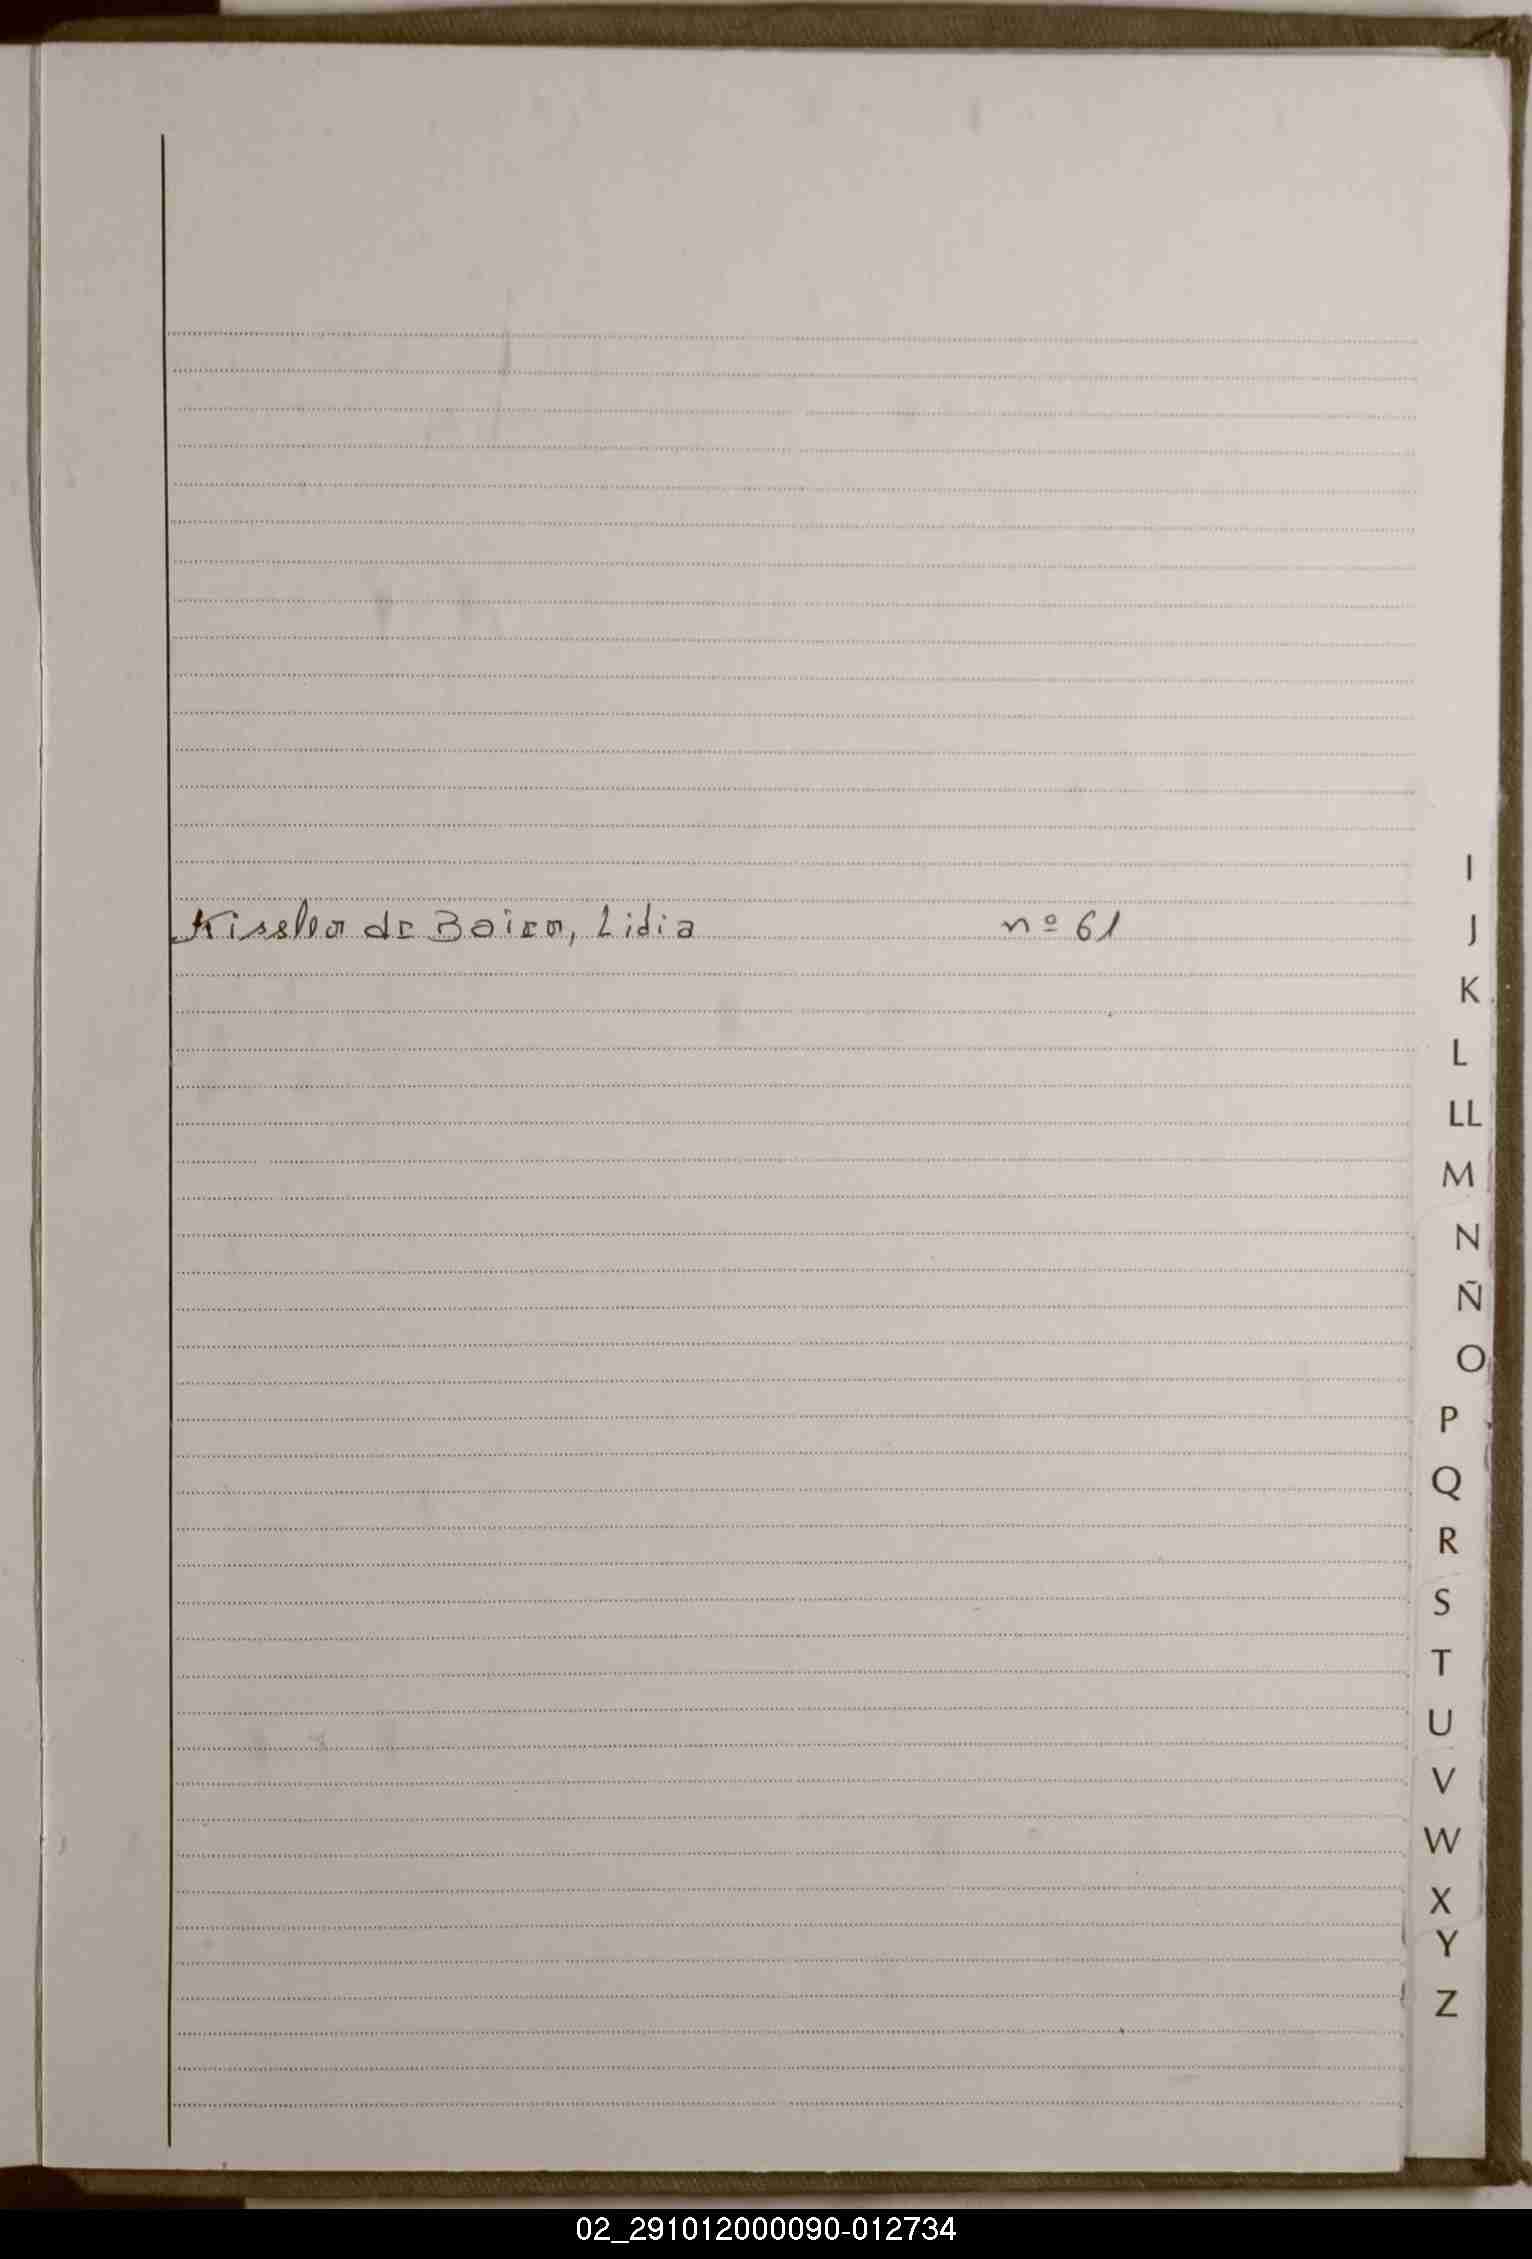 Kissler de Baier, Lidia nº 61
I
J
K
L
LL
M
N
Ñ
O
P
Q
R
S
T
U
V
W
X
Y
Z
02_291012000090-012734